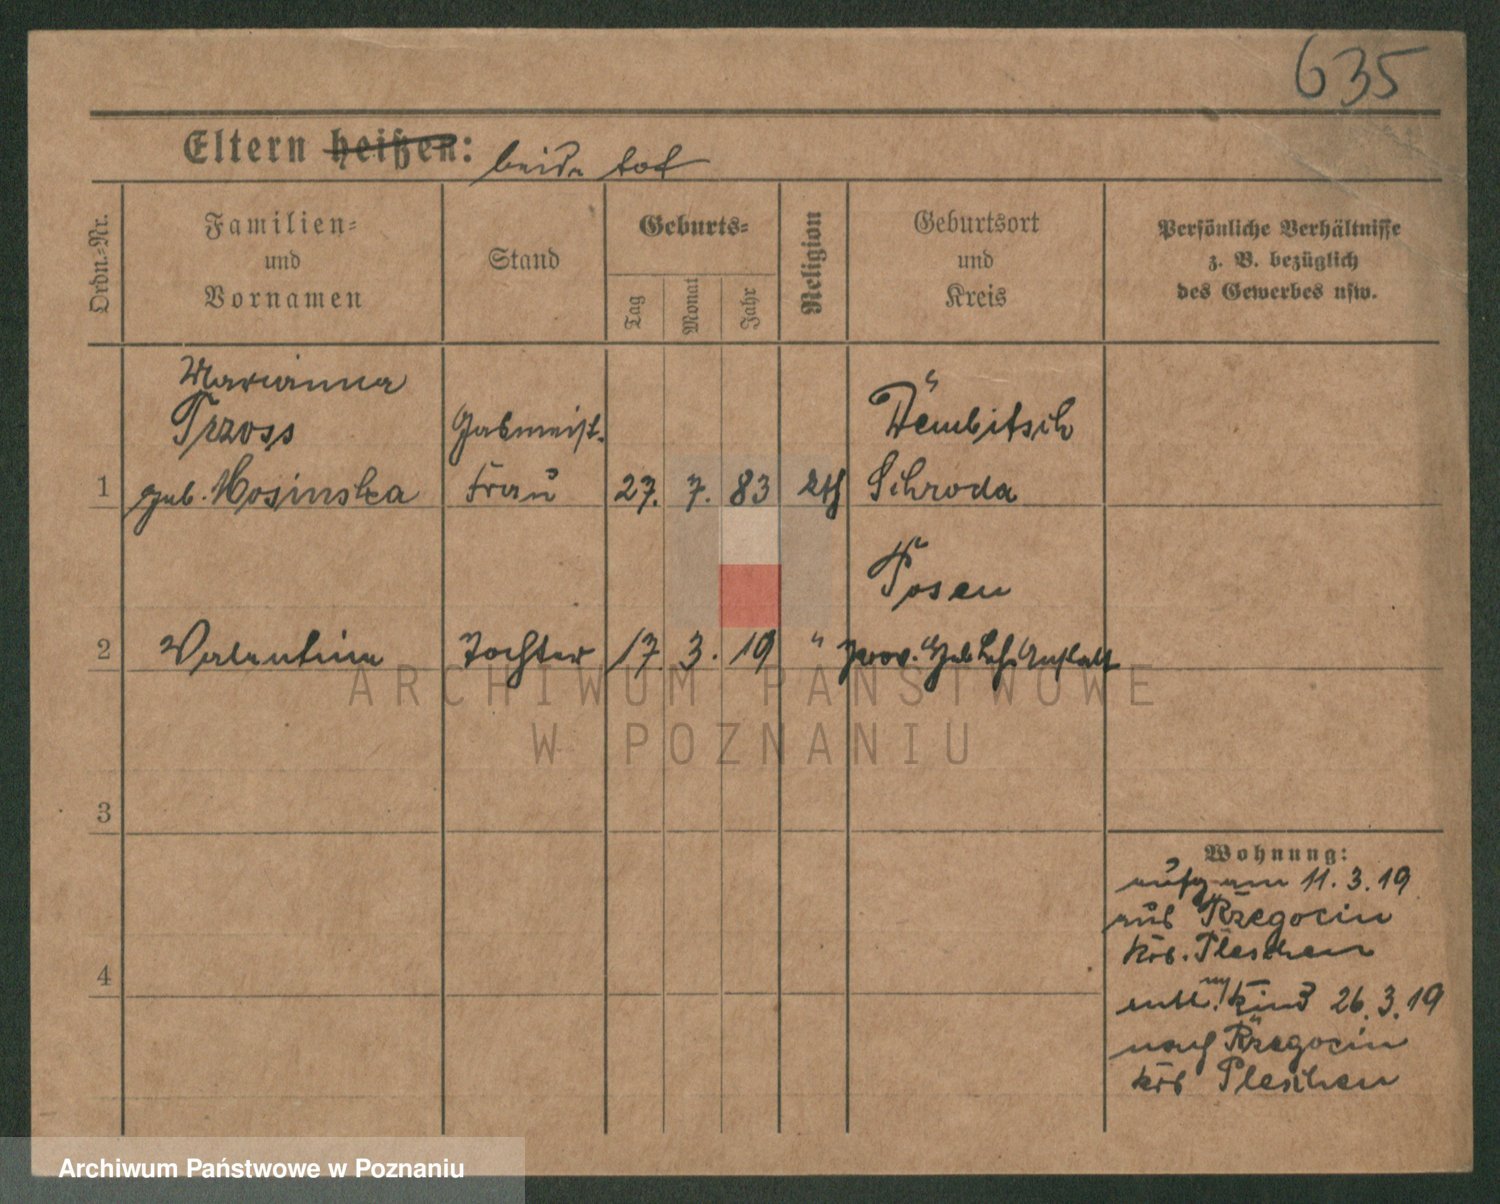 635
Eltern heißen: beide tot
Ordn.-Nr.
Familien-
und
Vornamen
Stand
Geburts-
Tag
Monat
Jahr
Religion
Geburtsort
und
Kreis
Persönliche Verhältnisse
z. B. bezüglich
des Gewerbes usw.
Marianna
Trzoss
1 geb. Mosinska
Frau
27. 7. 83
Dembitsch
Schroda
Posen
2 Valentina Tochter 17. 3. 19 " Prov. Heb Lehr Anstalt
3
4
Wohnung:
aufg am 11. 3. 19
aus Rzegocin
Krs. Pleschen
entl. m/ Kind 26. 3. 19
nach Rzegocin
Krs Pleschen
ARCHIWUM PAŃSTWOWE
W POZNANIU
Archiwum Państwowe w Poznaniu